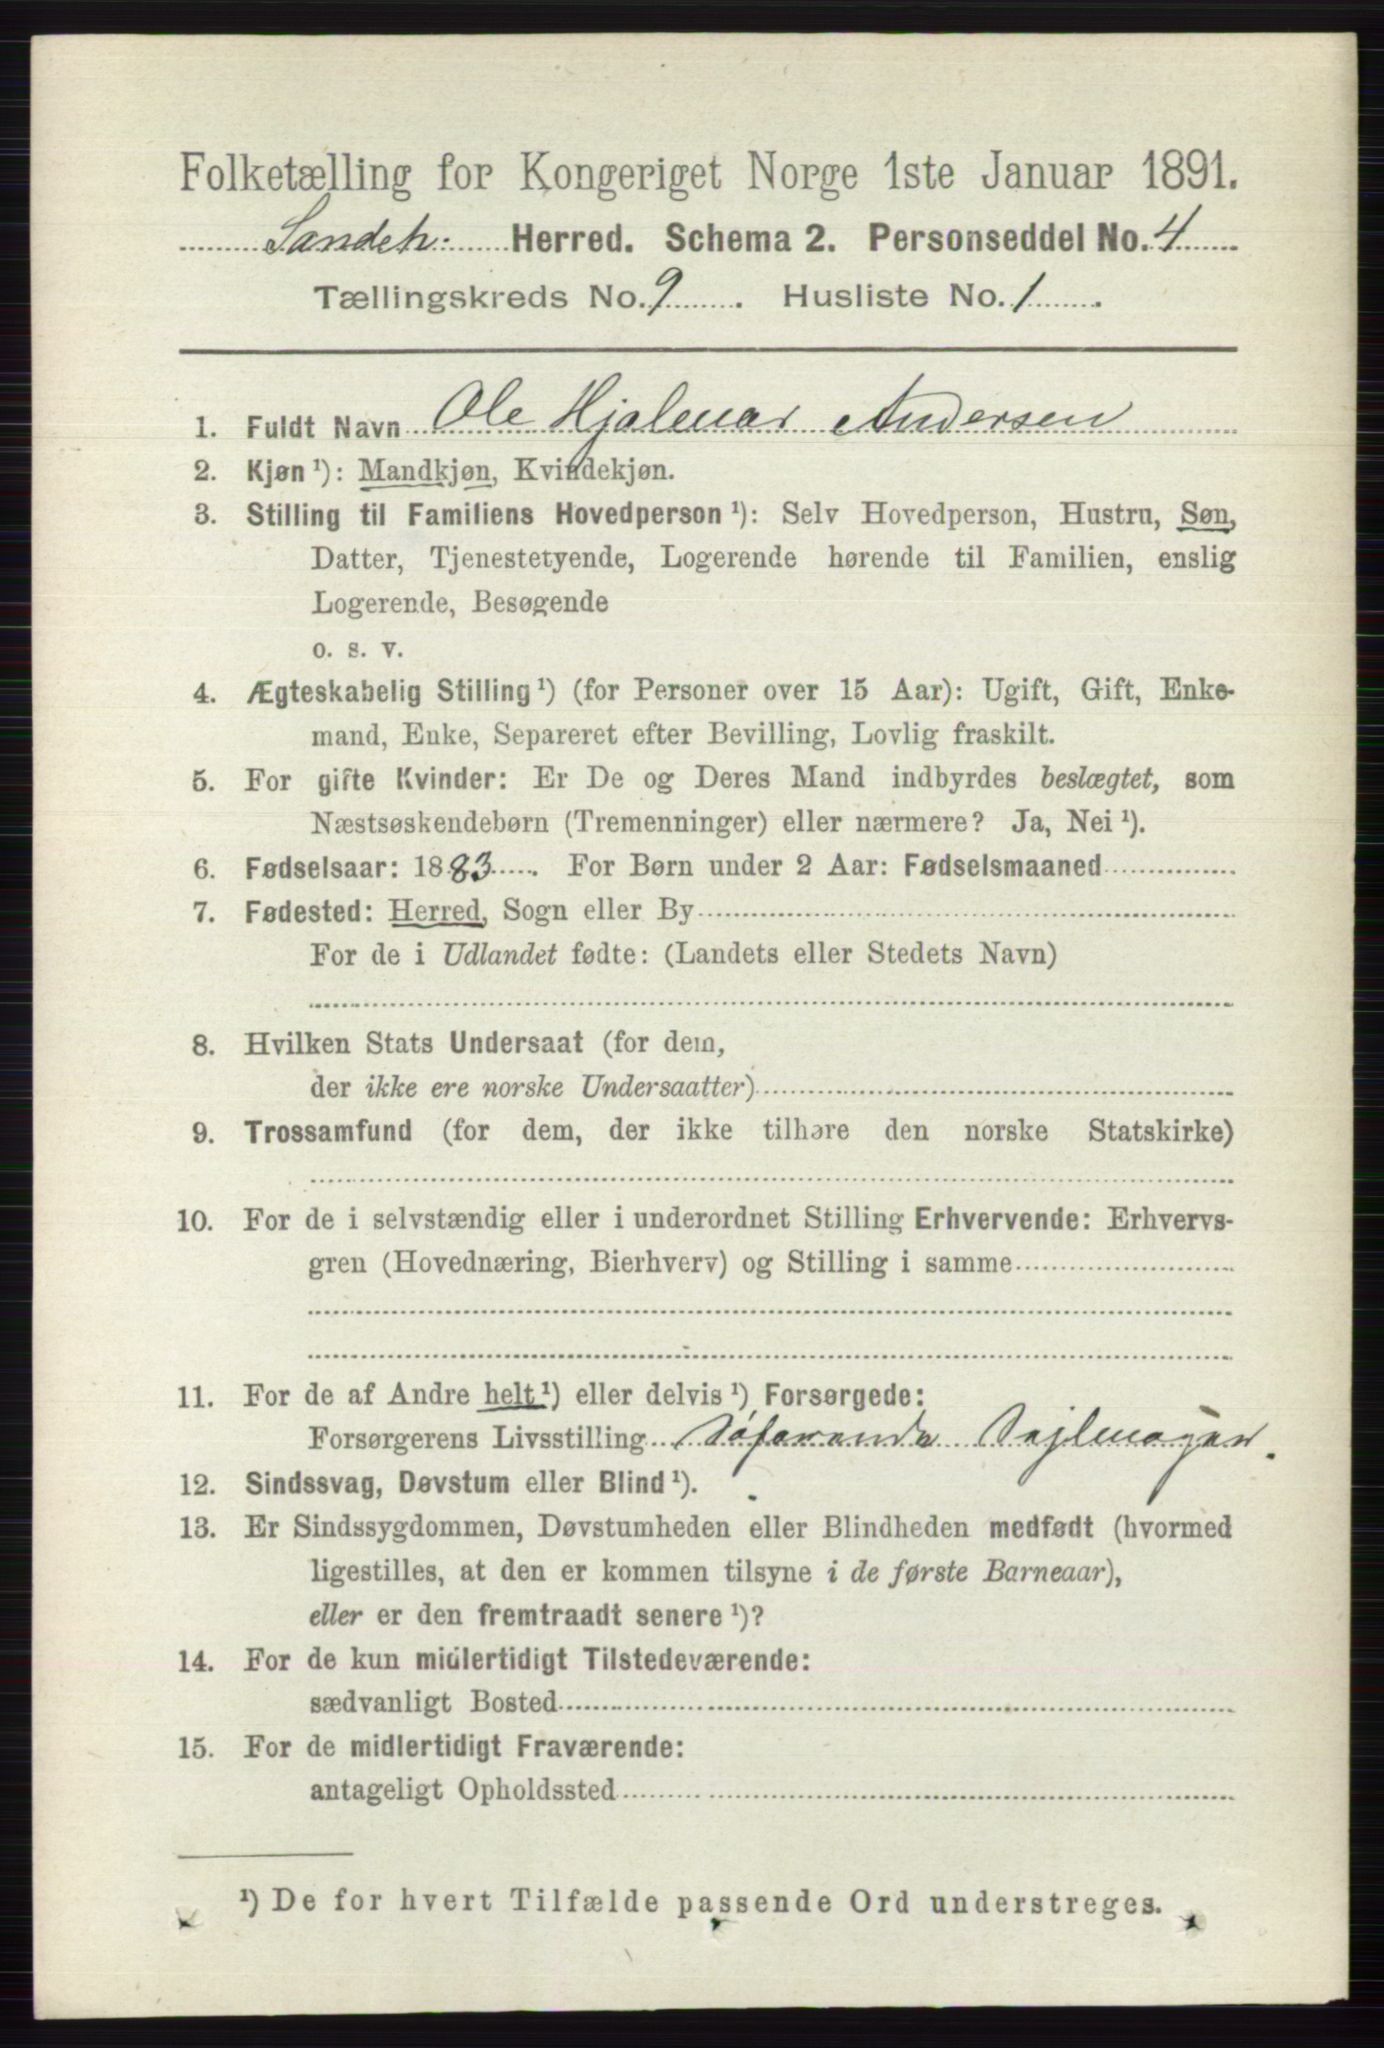 Folketælling for Kongeriget Norge 1ste Januar 1891.
Sandeh. Herred. Schema 2. Personseddel No. 4
Tællingskreds No. 9. Husliste No. 1.
1. Fuldt Navn Ole Hjalmar Andersen
2. Kjøn ¹): Mandkjøn, Kvindekjøn.
3. Stilling til Familiens Hovedperson ¹): Selv Hovedperson, Hustru, Søn,
Datter, Tjenestetyende, Logerende hørende til Familien, enslig
Logerende, Besøgende
o. s. v.
4. Ægteskabelig Stilling ¹) (for Personer over 15 Aar): Ugift, Gift, Enke-
mand, Enke, Separeret efter Bevilling, Lovlig fraskilt.
5. For gifte Kvinder: Er De og Deres Mand indbyrdes beslægtet, som
Næstsøskendebørn (Tremenninger) eller nærmere? Ja, Nei ¹).
6. Fødselsaar: 1883. For Børn under 2 Aar: Fødselsmaaned
7. Fødested: Herred, Sogn eller By
For de i Udlandet fødte: (Landets eller Stedets Navn)
8. Hvilken Stats Undersaat (for dem,
der ikke ere norske Undersaatter)
9. Trossamfund (for dem, der ikke tilhøre den norske Statskirke)
10. For de i selvstændig eller i underordnet Stilling Erhvervende: Erhvervs-
gren (Hovednæring, Bierhverv) og Stilling i samme
11. For de af Andre helt ¹) eller delvis ¹) Forsørgede:
Forsørgerens Livsstilling Søfarende Sejlmager.
12. Sindssvag, Døvstum eller Blind ¹).
13. Er Sindssygdommen, Døvstumheden eller Blindheden medfødt (hvormed
ligestilles, at den er kommen tilsyne i de første Barneaar),
eller er den fremtraadt senere ¹)?
14. For de kun midlertidigt Tilstedeværende:
sædvanligt Bosted
15. For de midlertidigt Fraværende:
antageligt Opholdssted
¹) De for hvert Tilfælde passende Ord understreges.